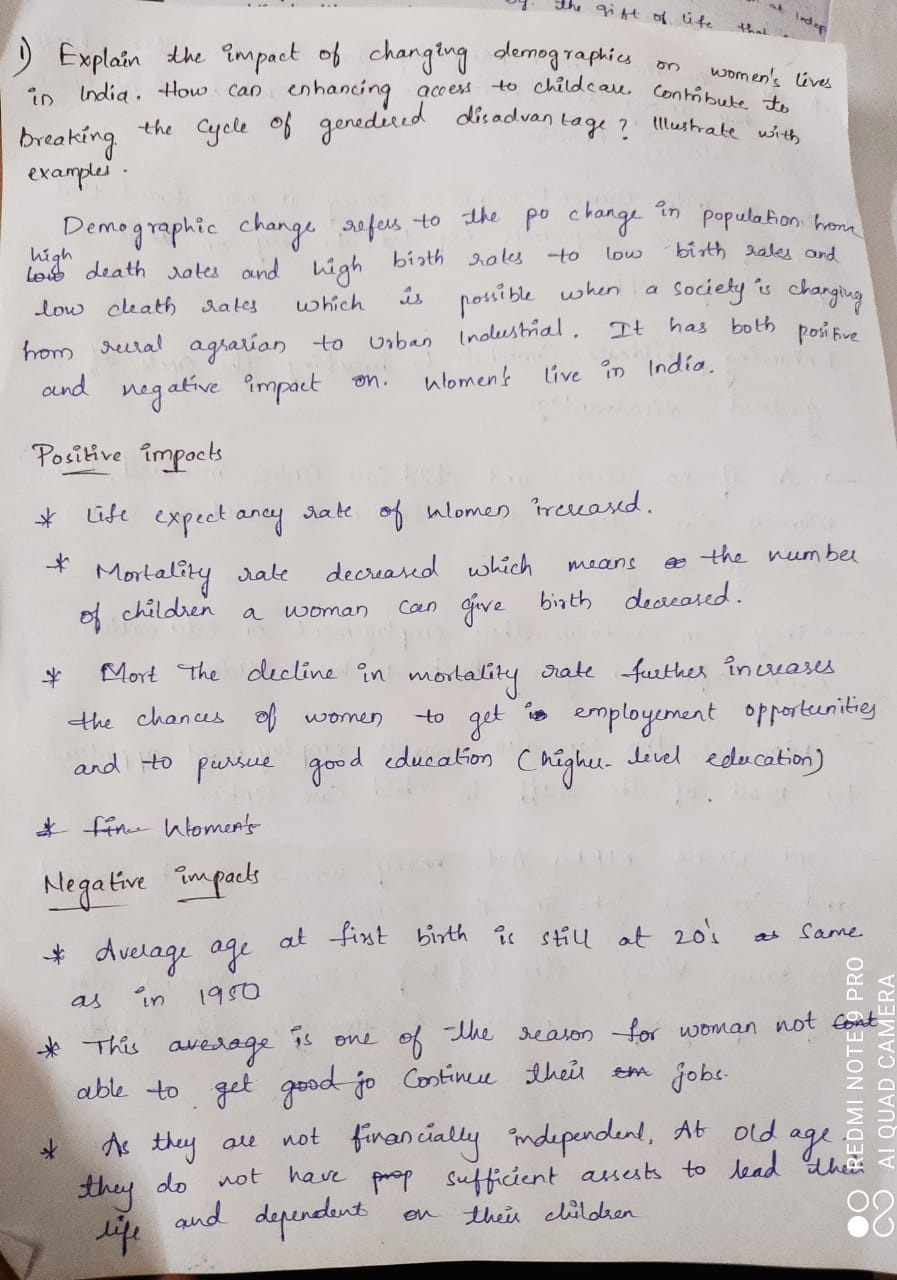 the gift of life that
1) Explain the impact of changing demographics on women's lives
in India. How can enhancing access to childcare contribute to
breaking the cycle of genedered disadvantage? Illustrate with
examples.
Demographic change refers to the po change in population from
high
low death rates and high birth rates to low birth rates and
low death rates which is possible when a society is changing
from rural agrarian to Urban Industrial. It has both positive
and negative impact on. Women's live in India.
Positive impacts
* Life expectancy rate of Women ircreased.
* Mortality rate decreased which means the number
of children a woman can give birth decreased.
* Mort The decline in mortality rate further increases
the chances of women to get employement opportunities
and to pursue good education (higher level education)
* fin Women's
Negative impacts
* Average age at first birth is still at 20's as Same
as in 1950
* This average is one of the reason for woman not cont
able to get good jo Continue their em jobs.
* As they are not financially independent, At old age
they do not have prop sufficient assests to lead their
life and dependent on their children
REDMI NOTE 9 PRO
AI QUAD CAMERA